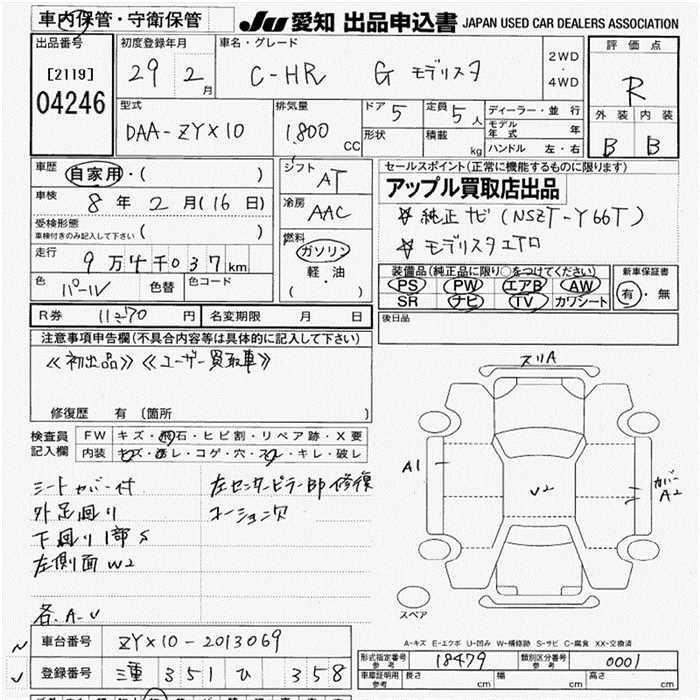 車内保管・守衛保管 JU 愛知 出品申込書 JAPAN USED CAR DEALERS ASSOCIATION
出品番号 初度登録年月 車名・グレード 2WD ・ 4WD 評価点
[2119] 04246 29 2月 C-HR G モデリスタ R
型式 排気量 ドア 5 定員 5人 ディーラー・並行 外装 内装
DAA-ZYX10 1,800 CC 形状 積載 kg モデル年式 年 B B
ハンドル 左・右
車歴 自家用・( ) シフト AT セールスポイント(正常に機能するものに限ります)
車検 8年 2月(16日) 冷房 AAC アップル買取店出品
受検形態 車検付きのみ記入して下さい ( ) ☆ 純正ナビ(NSZT-Y66T)
走行 9万4千037km 燃料 ガソリン 軽・油 ( ) ☆ モデリスタエアロ
色 パール 色替 色コード 装備品(純正品に限り○をつけてください) 新車保証書
PS PW エアB AW 有・無
SR ナビ TV カワシート
R券 円 名変期限 月 日 後日品
注意事項申告欄(不具合内容等は具体的に記入して下さい)
≪初出品≫≪ユーザー買取車≫
修復歴 有 〔箇所 〕
検査員記入欄 FW キズ・飛石・ヒビ割・リペア跡・X要
内装 キズ・汚レ・コゲ・穴・スレ・キレ・破レ
シートカバー付 左センターピラー部修復
外足廻り コーション欠
下廻り1部S
左側面W2
各.A-U
スリA
A1
V2
カバーA2
スペア
A-キズ E-エクボ U-凹み W-補修跡 S-サビ C-腐食 XX-交換済
車台番号 ZYX10-2013069 形式指定番号 参考 18479 類別区分番号 参考 0001
登録番号 三重 351 ひ 358 車庫証明用 参考 長さ cm 幅 cm 高さ cm